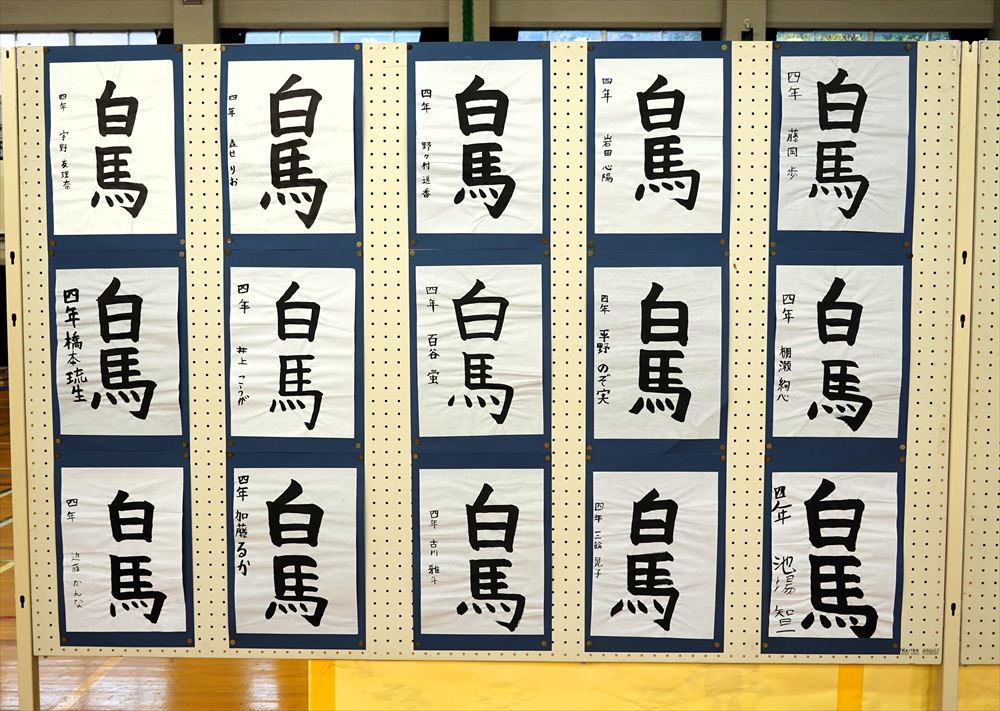 白馬
四年 宇野 友理奈
白馬
四年 森せ りお
白馬
四年 野々村 遥香
白馬
四年 岩田 心陽
白馬
四年 藤岡 歩
白馬
四年 橋本琉生
白馬
四年 井上 こうが
白馬
四年 百谷 蛍
白馬
四年 平野 のぞ実
白馬
四年 棚瀬 絢心
白馬
四年 近藤 かんな
白馬
四年 加藤るか
白馬
四年 古川 雅斗
白馬
四年 三輪 晃子
白馬
四年 池場